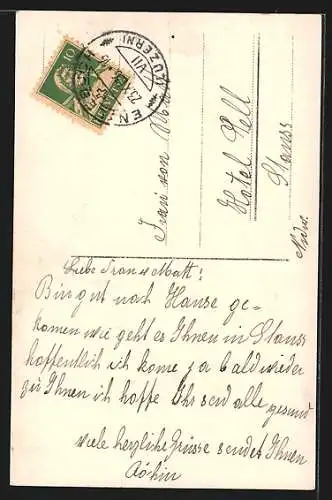 10
HELVETIA
LUZERN
23. VII
Frau von Matt
Hotel Tell
Stanss
Nidw.
Liebe Frau v Matt!
Bin gut nach Hause ge-
komen wie geht es Ihnen in Stanss
hoffentlich ich kome ja bald wieder
zu Ihnen ich hoffe Ihr seid alle gesund
viele herzliche Grüsse sendet Ihnen